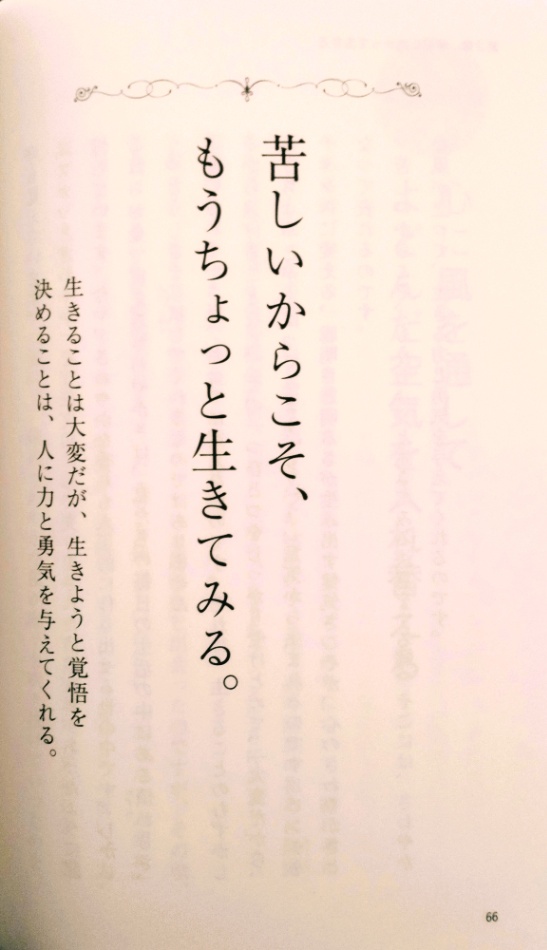 苦しいからこそ、
もうちょっと生きてみる。
生きることは大変だが、生きようと覚悟を
決めることは、人に力と勇気を与えてくれる。
66